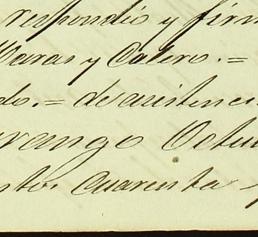 respondió y firm
Varas y Calero.=
do.= de asistenci
urango Octu
ntos Cuarenta y